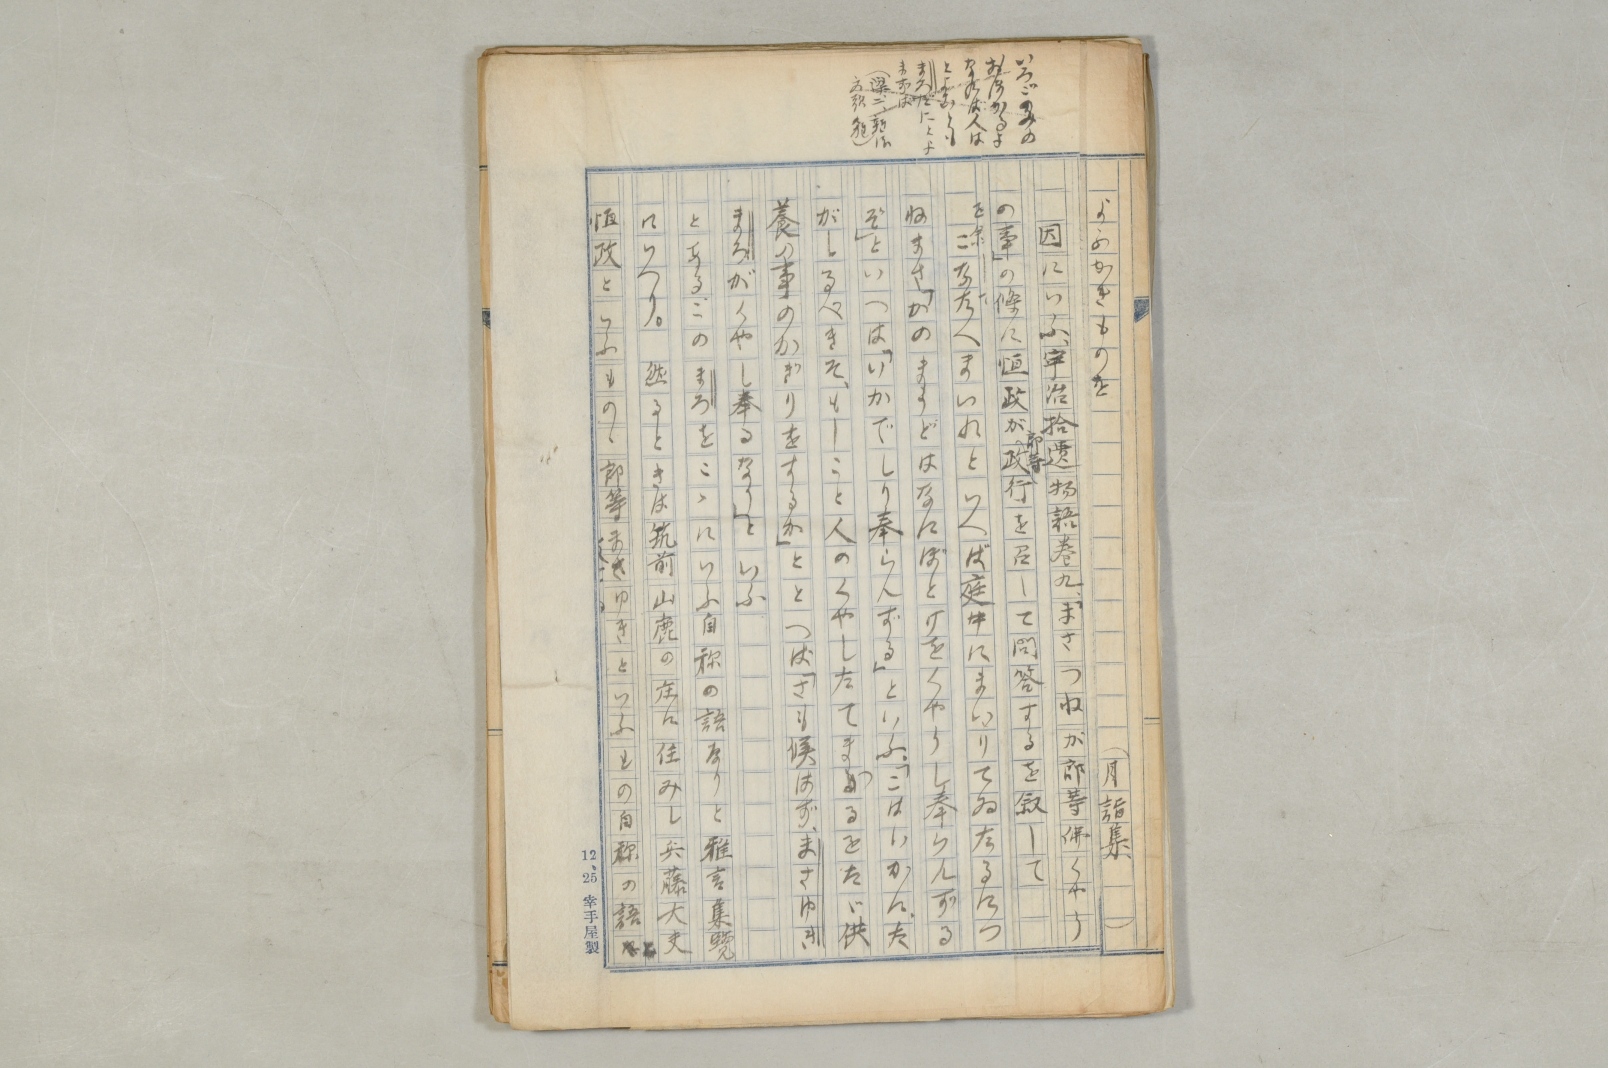 いろごのみの
おほかるよ
なれば人は
とも
まろだにとよ
まれば
よふかきものを
（月詣集）
因にいふ、宇治拾遺物語巻九、「まさつねが郎等佛くやう
の事」の條に恒政が郎等政行を召して問答するを叙して
こなたへまいれといへば庭中にまいりてゐたるにつ
ねまさ「かのまうどはなにぼとけをくやうし奉らんずる
ぞ」といへは「いかでしり奉らんずる」といふ。「こはいかに、た
がしるべきそ、もしこと人のくやしたてまつるをたゞ供
養の事のかぎりをするか」ととへば「さも候はず、まさゆき
まろがくやし奉るなり」といふ
とあるこのまろをこゝにいふ自称の語なりと雅言集覽
にいへり。然るときは筑前山鹿の庄に住みし兵藤大夫
恒政といふものゝ郎等まさゆきといふもの自称の語
12、25 幸手屋製